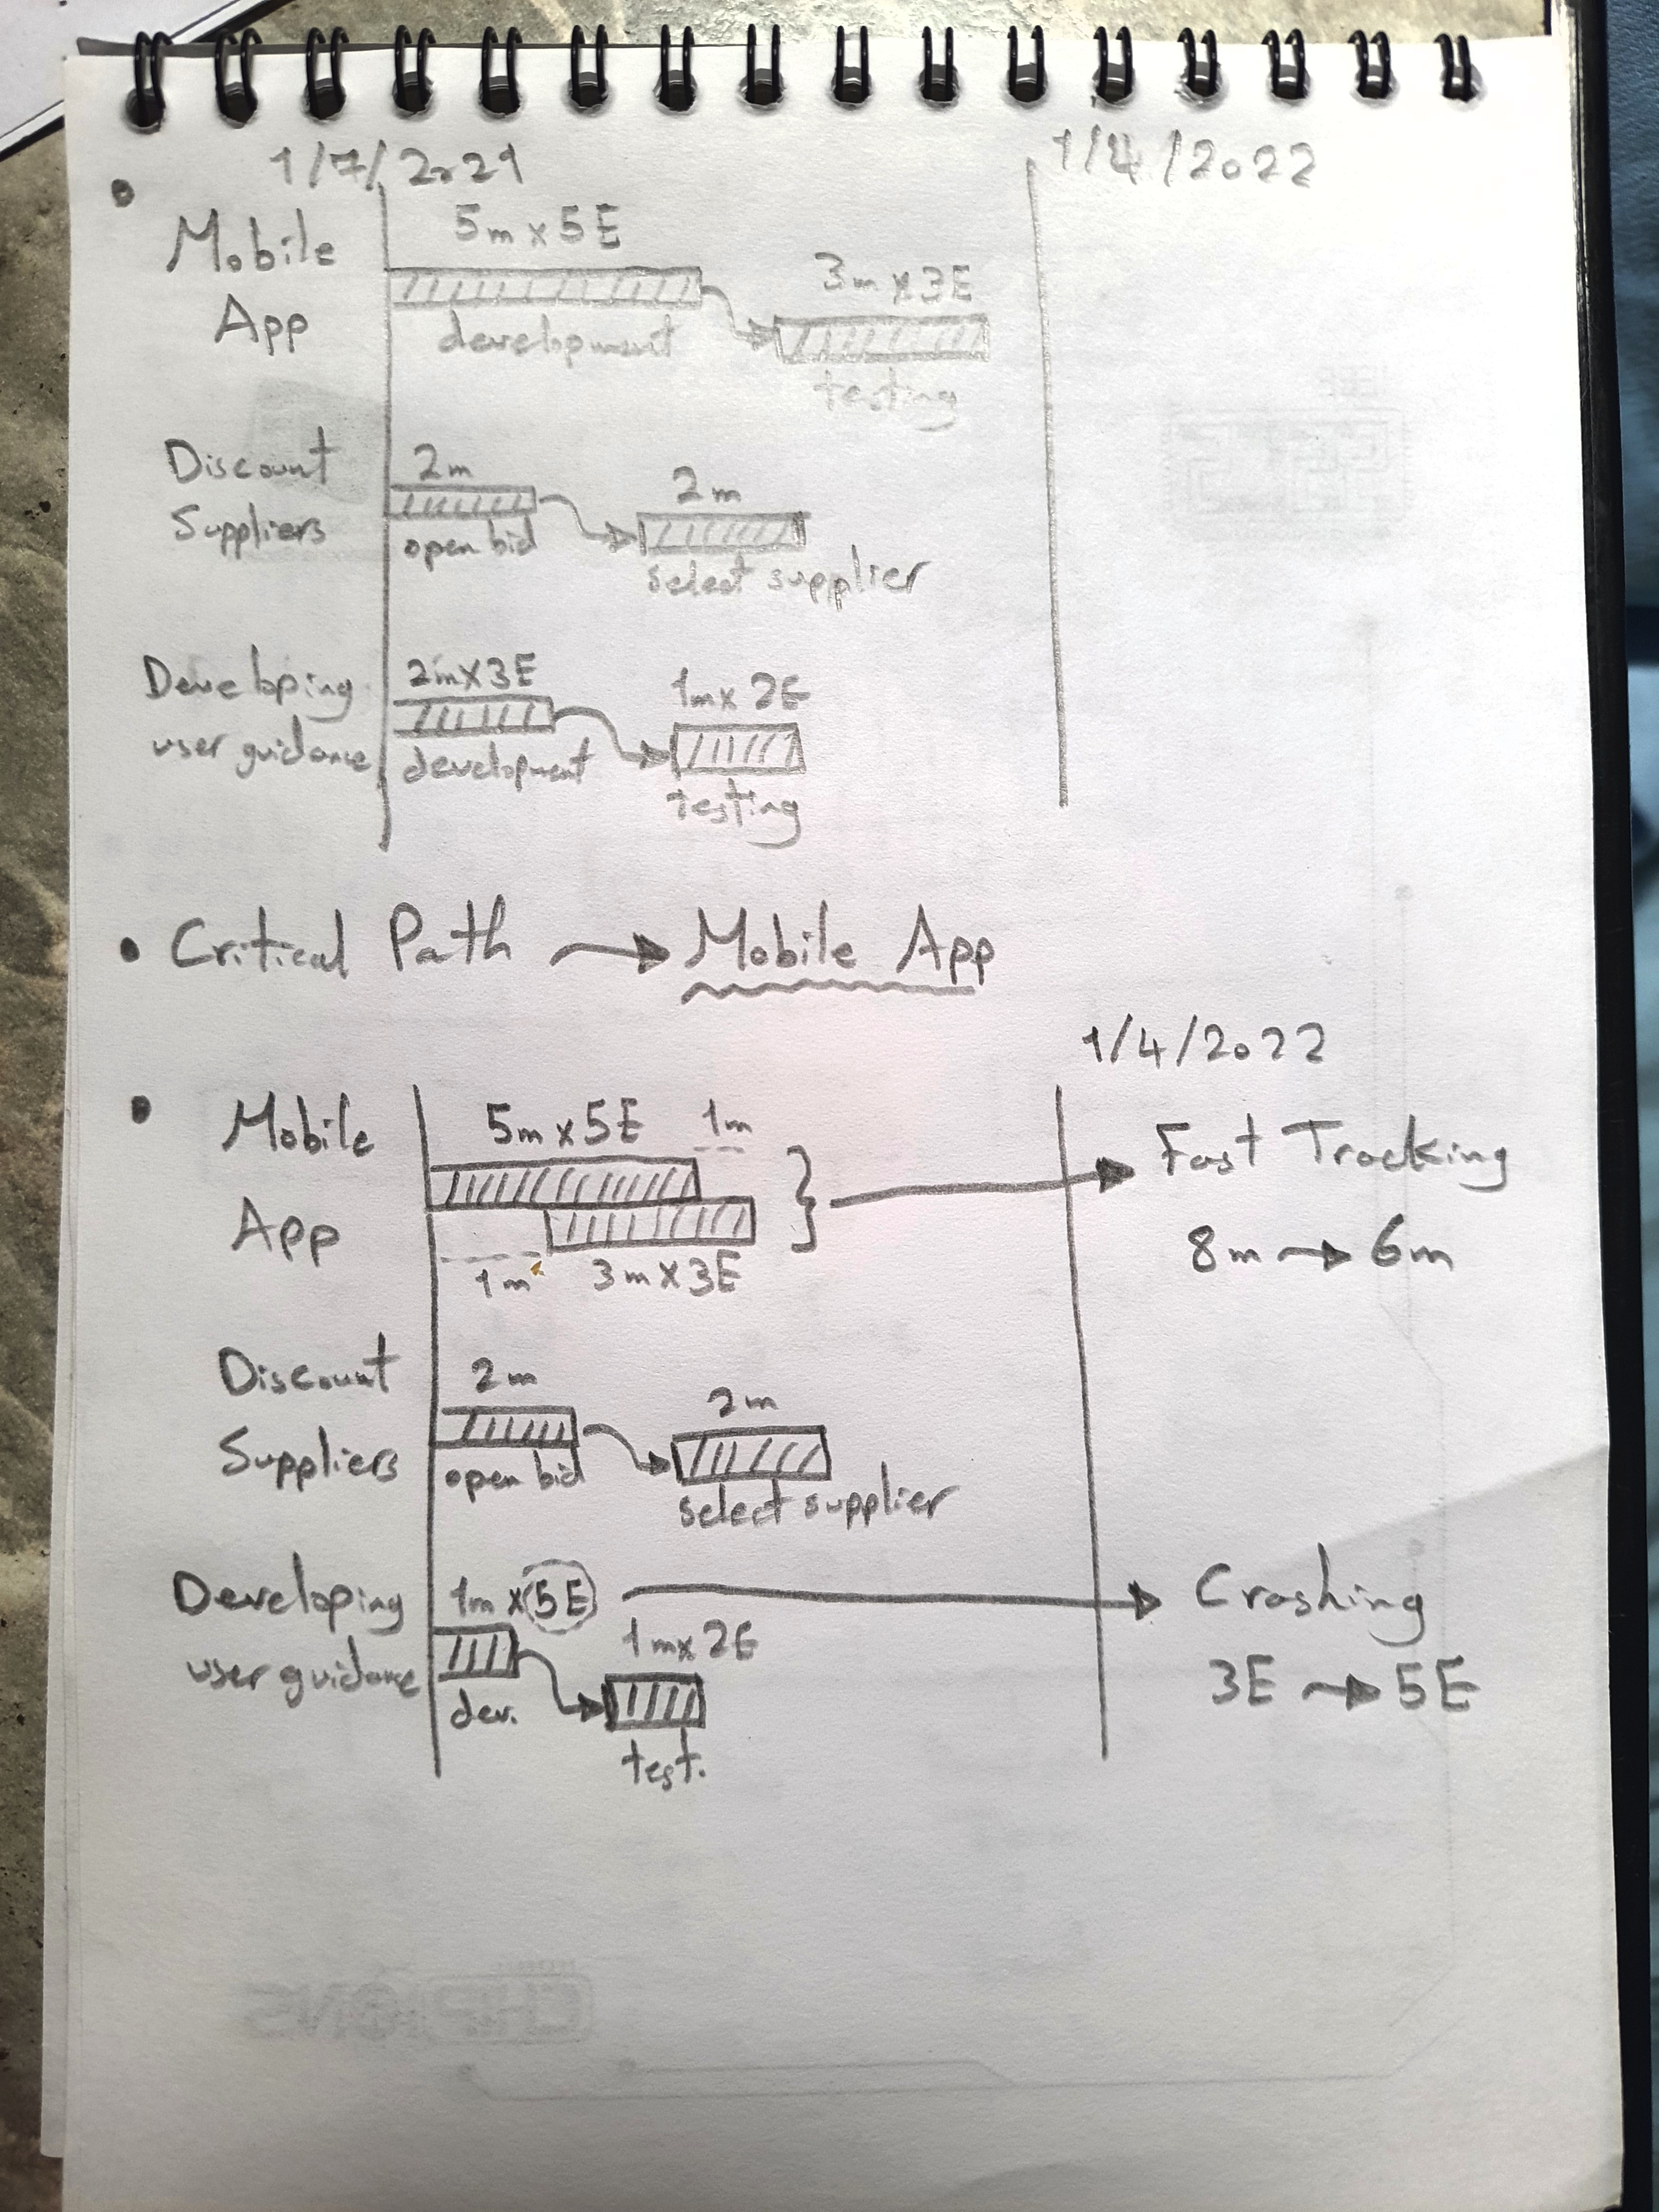 1/7/2021
1/4/2022
Mobile
App
5m x 5E
development
3m x 3E
testing
Discount
Suppliers
2m
open bid
2m
select supplier
Developing
user guidance
2m x 3E
development
1m x 2E
testing
• Critical Path → Mobile App
1/4/2022
• Mobile
App
5m x 5E
1m
1m
3m x 3E
Fast Tracking
8m → 6m
Discount
Suppliers
2m
open bid
2m
select supplier
Developing
user guidance
1m x 5E
dev.
1m x 2E
test.
Crashing
3E → 5E